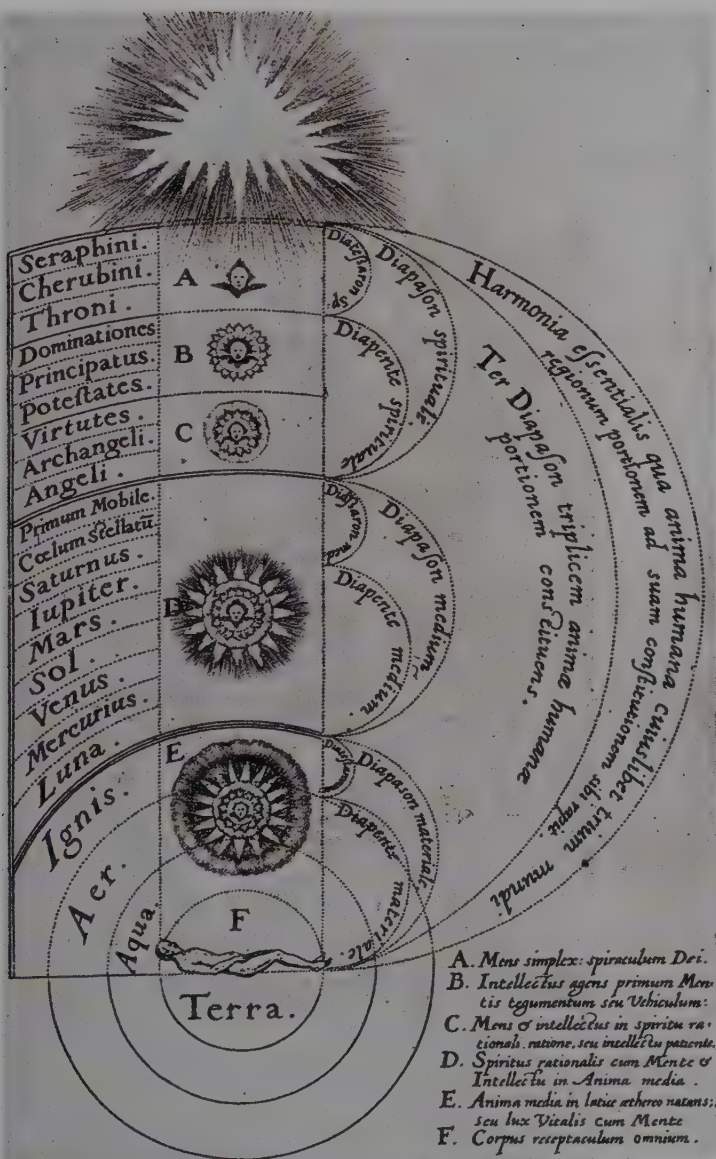 Seraphini.
Cherubini.
Throni.
Dominationes
Principatus.
Poteſtates.
Virtutes.
Archangeli.
Angeli.
Primum Mobile.
Cœlum Stellatū
Saturnus.
Iupiter.
Mars.
Sol.
Venus.
Mercurius.
Luna.
Ignis.
Aer.
Aqua.
Terra.
A
B
C
D
E
F
Diateſsaron Sp
Diapaſon spirituale.
Diapente spirituale
Diapaſon medium
Diapente medium.
Diapason materiale.
Diapente materiale.
Ter Diapaſon triplicem animæ humanæ
portionem conſtituens.
Harmonia eſsentialis qua anima humana cuiuslibet trium mundi
regionum portionem ad suam conſtitutionem sibi rapit.
A. Mens simplex: spiraculum Dei.
B. Intellectus agens primum Men-
tis tegumentum seu Vehiculum:
C. Mens & intellectus in spiritu ra-
tionali. ratione, seu intellectu patiente.
D. Spiritus rationalis cum Mente &
Intellectu in Anima media.
E. Anima media in latice æthereo natans;
seu lux Vitalis cum Mente
F. Corpus receptaculum omnium.